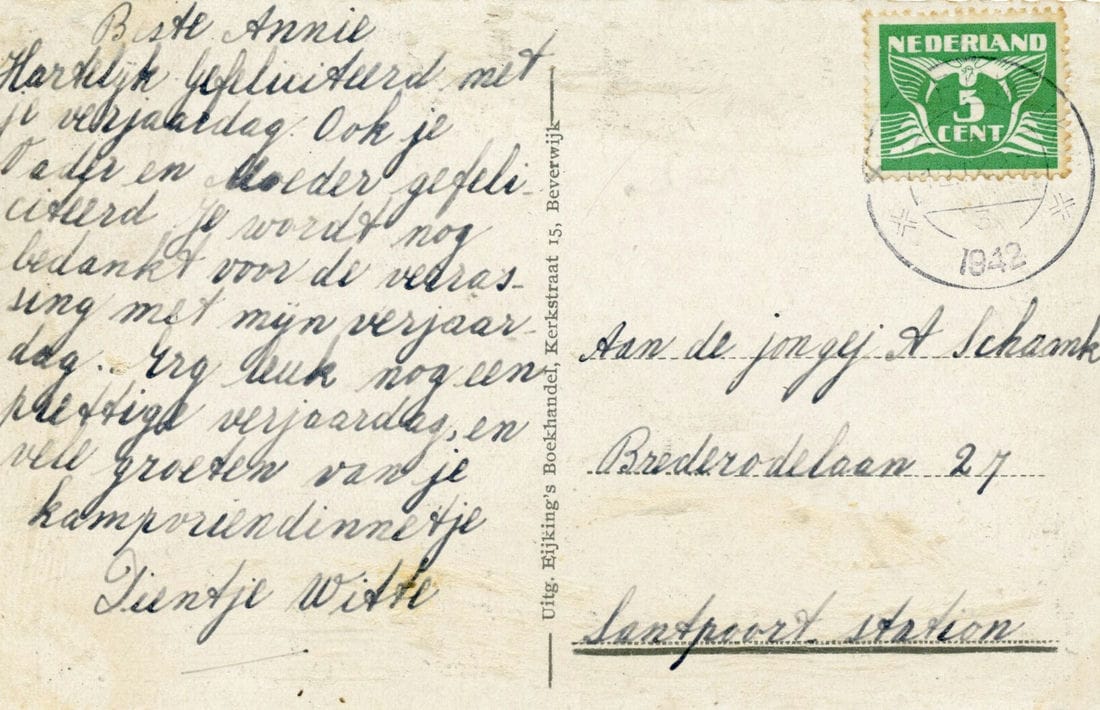 Beste Annie
Hartelijk Gefeliciteerd met
je verjaardag. Ook je
Vader en Moeder gefeli-
citeerd Je wordt nog
bedankt voor de verras-
sing met mijn verjaar-
dag. Erg leuk nog een
prettige verjaardag, en
vele groeten van je
kampvriendinnetje
Tientje Witte
Uitg. Eijking's Boekhandel, Kerkstraat 15, Beverwijk
NEDERLAND
5
CENT
1942
Aan de jongej A Schamk
Brederodelaan 27
Santpoort station